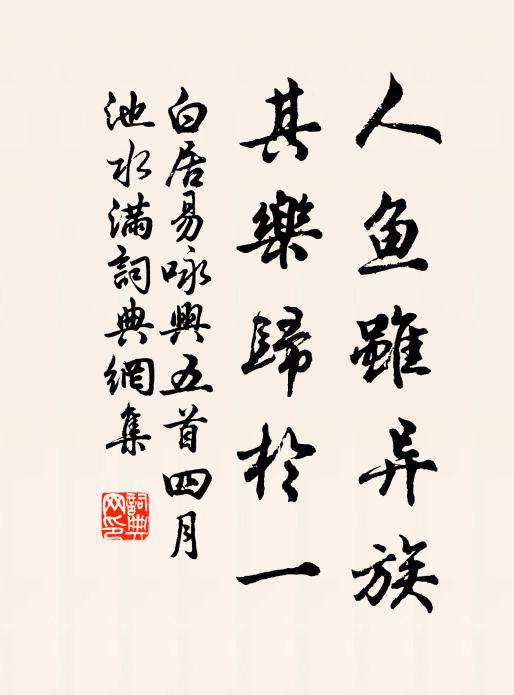 人鱼雖异族
其樂歸於一
白居易咏興五首四月
池水滿詞典網集
詞典网印